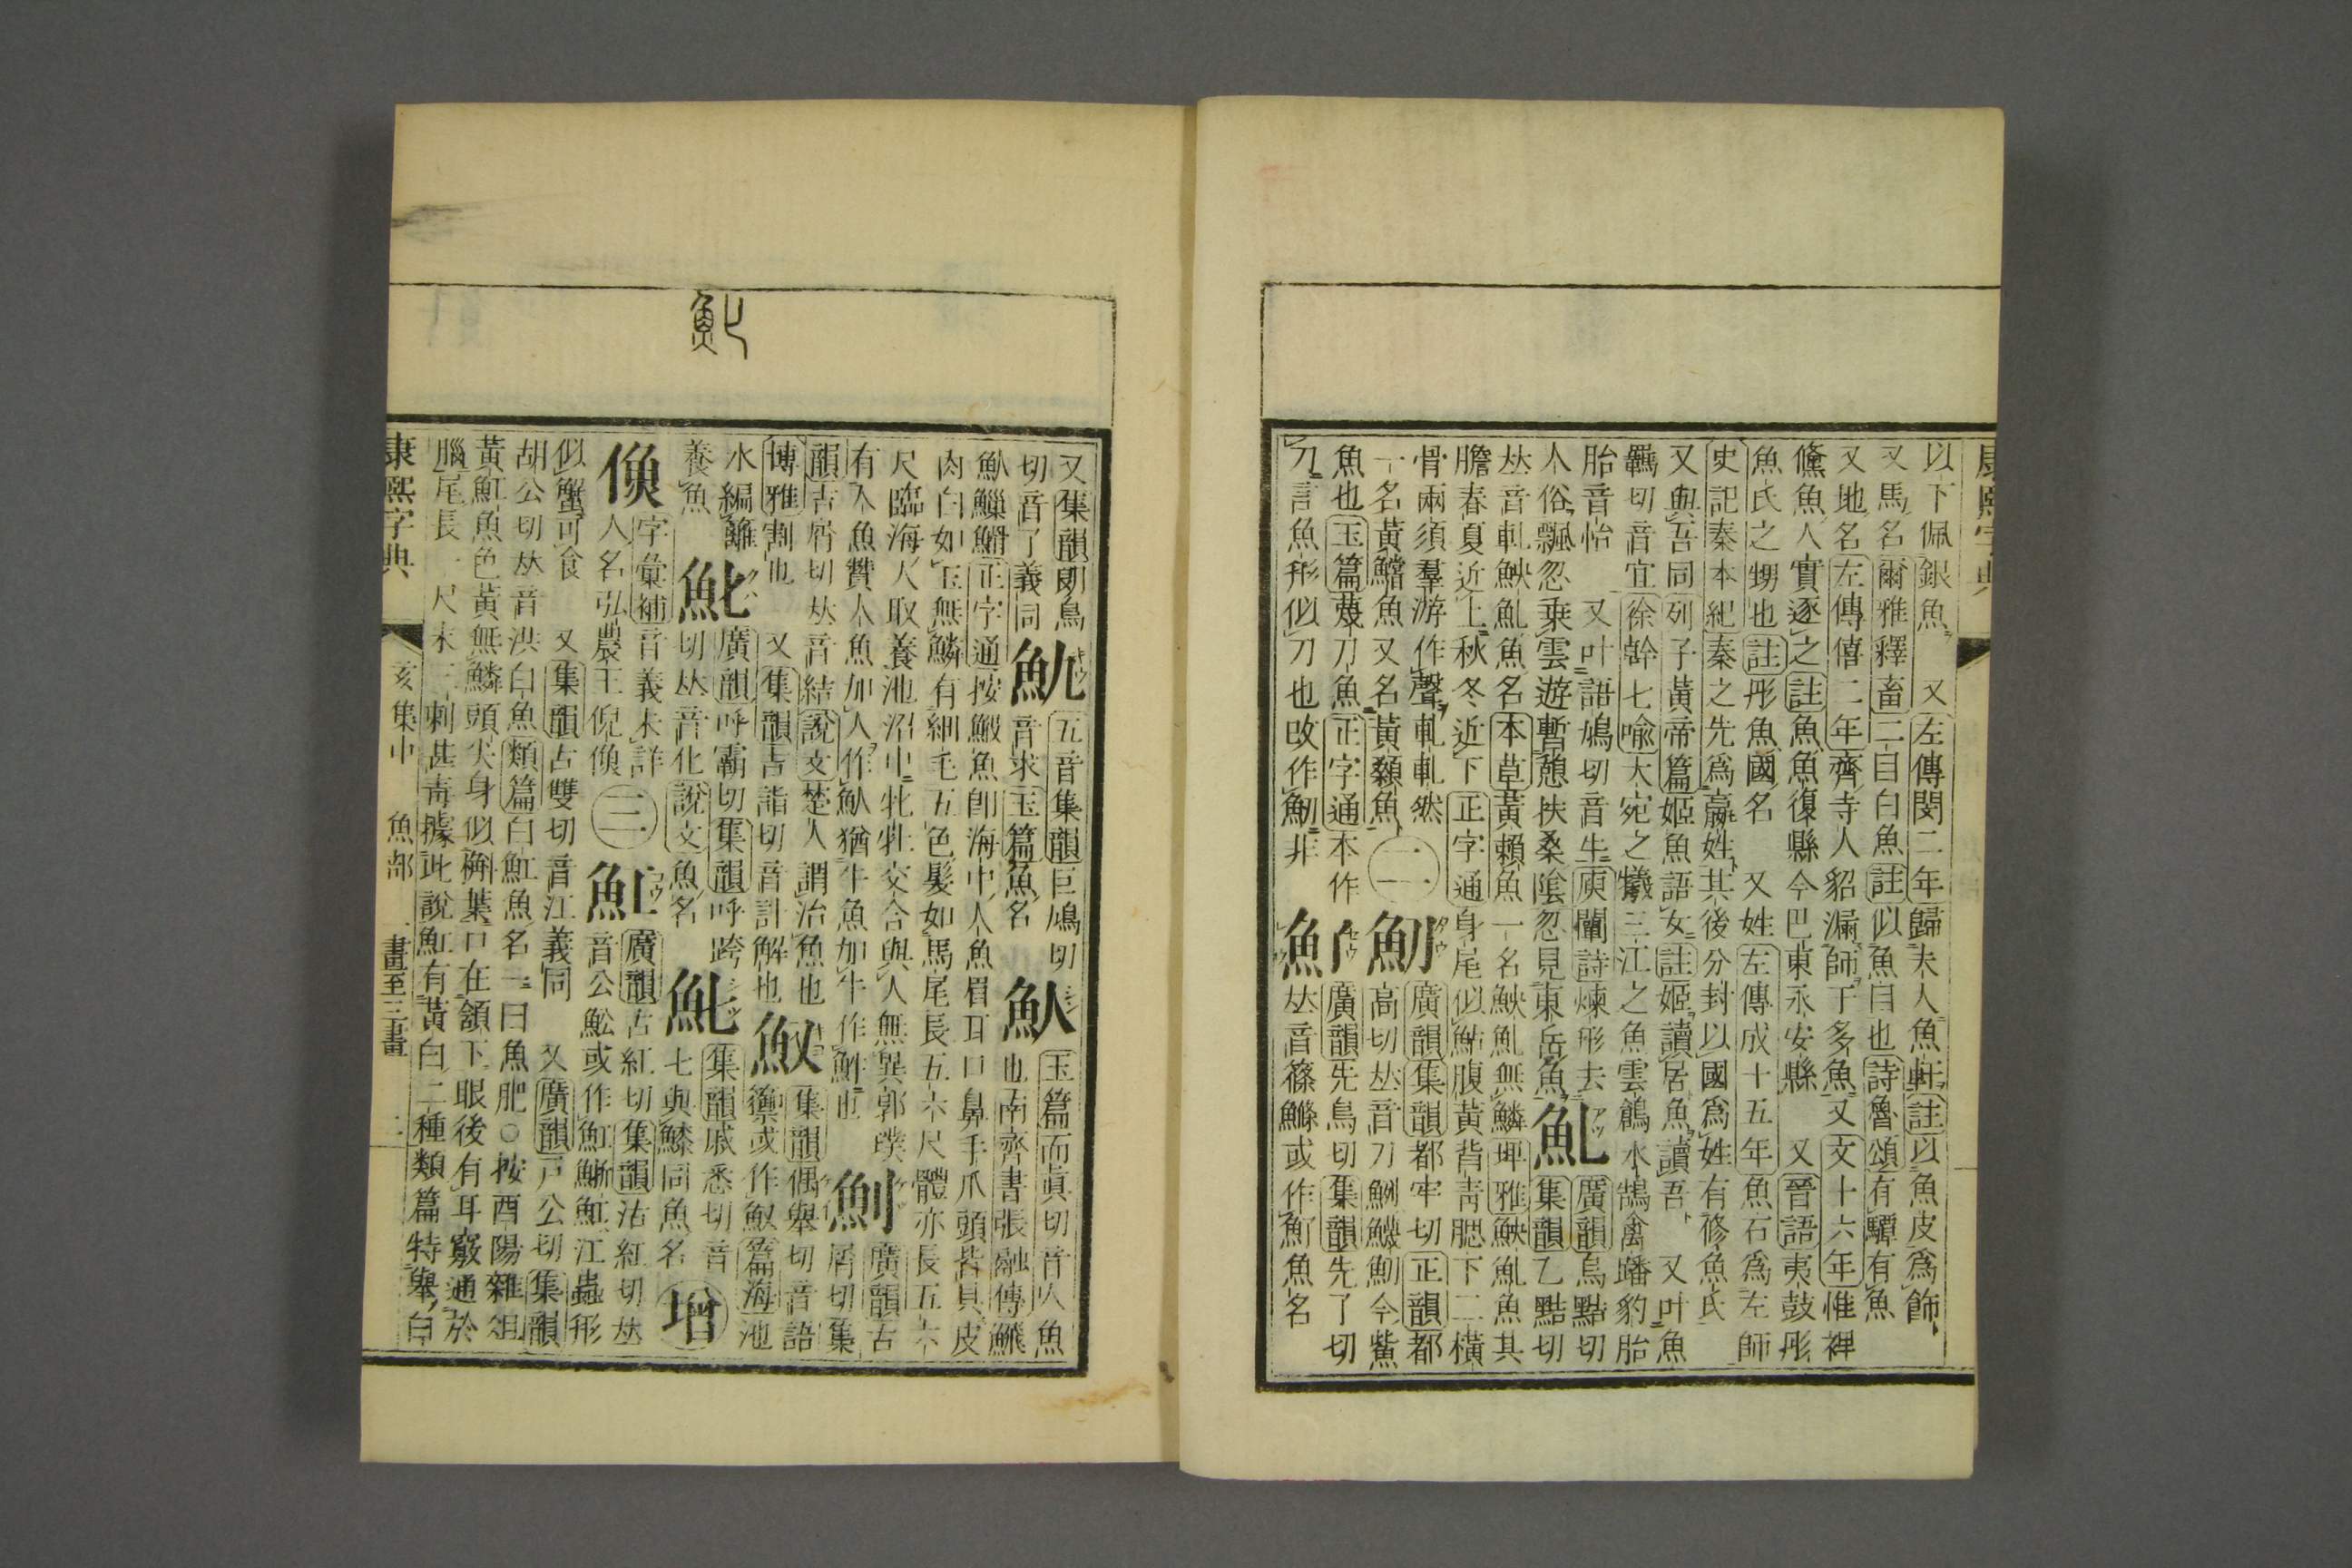 以下佩銀魚 又左傳閔二年歸夫人魚軒註以魚皮爲飾
又馬名爾雅釋畜二目白魚註似魚目也詩魯頌有驔有魚
又地名左傳僖二年齊寺人貂漏師于多魚又文十六年惟裨
鯈魚人實逐之註魚魚復縣今巴東永安縣 又晉語夷鼓彤
魚氏之甥也註彤魚國名 又姓左傳成十五年魚石爲左師
史記秦本紀秦之先爲嬴姓其後分封以國爲姓有修魚氏
又與吾同列子黃帝篇姬魚語女註姬讀居魚讀吾 又叶魚
羈切音宜徐幹七喻大宛之犧三江之魚雲鶬水鵠禽蹯豹胎
胎音怡 又叶語鳩切音牛庾闡詩煉形去
人俗飄忽乘雲遊暫憩扶桑陰忽見東岳魚
魤
廣韻烏黠切
集韻乙黠切
𠀤音軋鉠魤魚名本草黃䫌魚一名鉠魤無鱗埤雅鉠魤魚其
膽春夏近上秋冬近下正字通身尾似鮎腹黃背靑腮下二橫
骨兩須羣游作聲軋軋然
一名黃鱨魚又名黃顙魚
二
魛
廣韻集韻都牢切正韻都
高切𠀤音刀魛鱴魛今鮆
魚也玉篇薎刀魚正字通本作
刀言魚形似刀也改作魛非
廣韻先鳥切集韻先了切
𠀤音篠鰷或作魚名
又集韻朗鳥
切音了義同
魷
五音集韻巨鳩切
音求玉篇魚名
魜
玉篇而眞切音人魚
也南齊書張融傳鱵
魜鱲䱻正字通按魚卽海中人魚眉耳口鼻手爪頭皆具皮
肉白如玉無鱗有細毛五色髮如馬尾長五六尺體亦長五六
尺臨海人取養池沼中牝牡交合與人無異郭璞
有人魚贊人魚加人作魜猶牛魚加牛作䱊也
魝
廣韻古
屑切集
韻吉屑切𠀤音結說文楚人謂治魚也
博雅割也 又集韻吉詣切音計解也
䰻
集韻偶舉切音語
䉷或作䰻篇海池
水編籬
養魚
魤
廣韻呼霸切集韻呼跨
切𠀤音化說文魚名
集韻戚悉切音
七與鰶同魚名
增
字彙補音義未詳
人名弘農王倪
三
魟
廣韻古紅切集韻沽紅切𠀤
音公魟或作江蟲形
似蟹可食 又集韻古雙切音江義同 又廣韻戸公切集韻
胡公切𠀤音洪白魚類篇白魟魚名一曰魚肥○按酉陽雜俎
黃魟魚色黃無鱗頭尖身似槲葉口在頷下眼後有耳竅通於
腦尾長一尺末三刺甚靑據此說魟有黃白二種類篇特舉白
康熙字典 亥集中 魚部 二畫至三畫